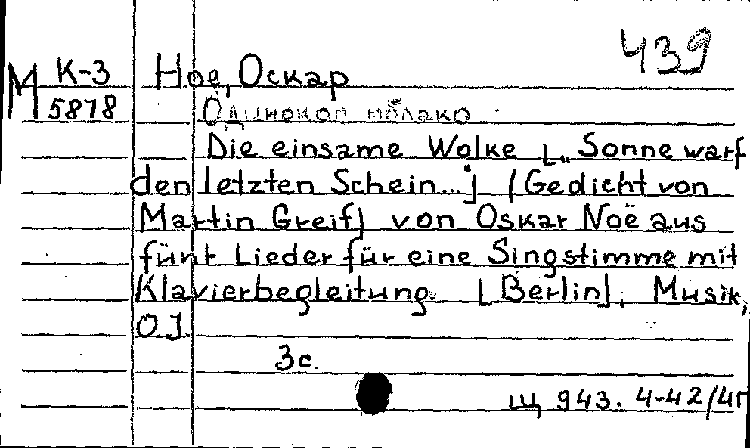 439
М К-3 Ное, Оскар
5878 Одинокое облако
Die einsame Wolke [„Sonne warf
den letzten Schein..."] (Gedicht von
Martin Greif) von Oskar Noë aus
fünf Lieder für eine Singstimme mit
Klavierbegleitung. [Berlin], Musik,
О.J.
3с.
Щ 943. 4-42/4П